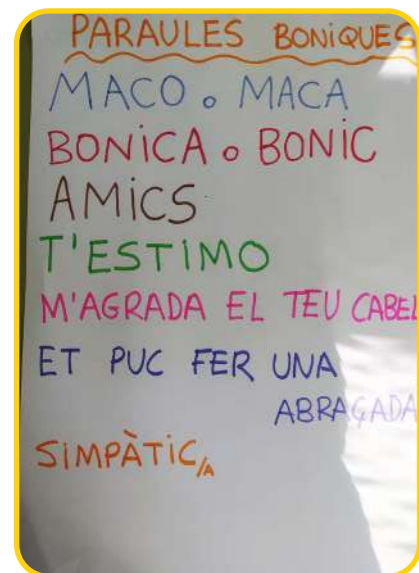 PARAULES BONIQUES
MACO o MACA
BONICA o BONIC
AMICS
T'ESTIMO
M'AGRADA EL TEU CABEL
ET PUC FER UNA
ABRAÇADA
SIMPÀTIC/A